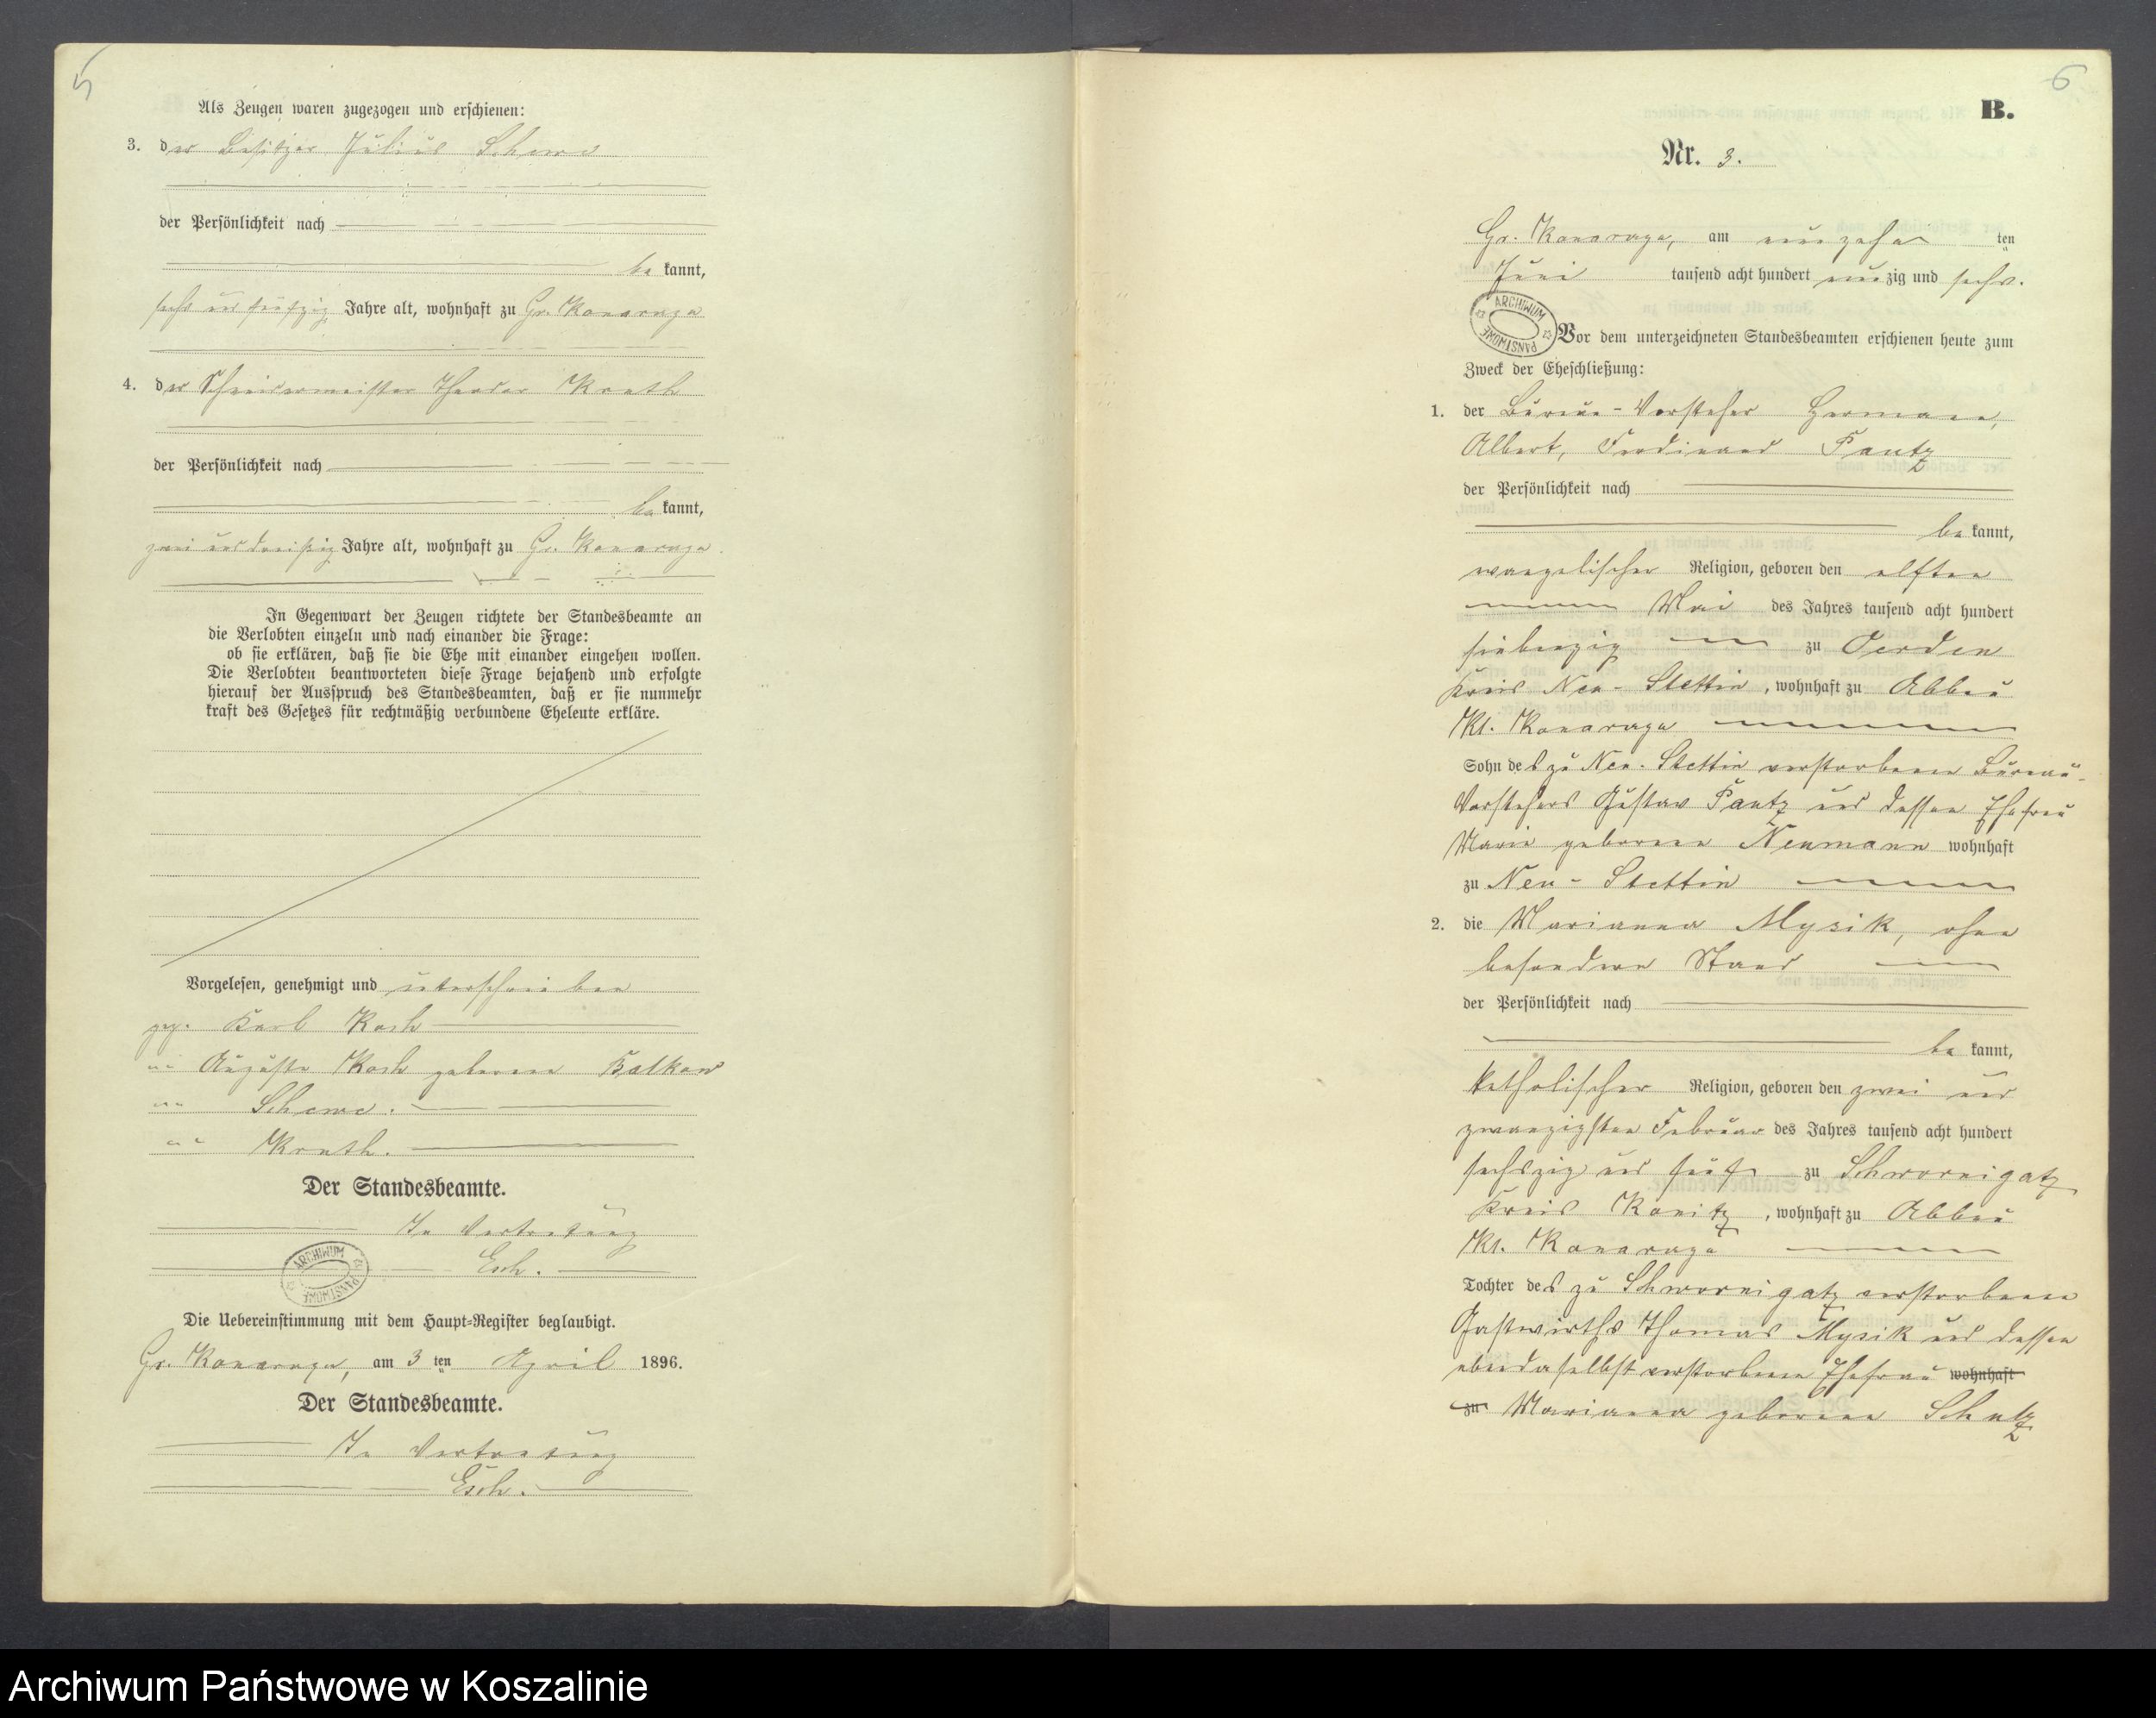 5
Als Zeugen waren zugezogen und erschienen:
3. der Besitzer Julius Schewe
der Persönlichkeit nach
bekannt,
sechs und fünfzig Jahre alt, wohnhaft zu Gr. Konarczyn
4. der Schneidermeister Theodor Knuth
der Persönlichkeit nach
bekannt,
zwei und dreißig Jahre alt, wohnhaft zu Gr. Konarczyn.
In Gegenwart der Zeugen richtete der Standesbeamte an
die Verlobten einzeln und nach einander die Frage:
ob sie erklären, daß sie die Ehe mit einander eingehen wollen.
Die Verlobten beantworteten diese Frage bejahend und erfolgte
hierauf der Ausspruch des Standesbeamten, daß er sie nunmehr
kraft des Gesetzes für rechtmäßig verbundene Eheleute erkläre.
Vorgelesen, genehmigt und unterschrieben
gez. Karl
" Auguste geborene
" Schewe.
" Knuth.
Der Standesbeamte.
In Vertretung
Esch.
ARCHIWUM PAŃSTWOWE
Die Uebereinstimmung mit dem Haupt-Register beglaubigt.
Gr. am 3 ten April 1896.
Der Standesbeamte.
In Vertretung
Esch.
6
B.
Nr. 3.
Gr. am neunzehnten
Juni tausend acht hundert neunzig und sechs.
ARCHIWUM PAŃSTWOWE
Vor dem unterzeichneten Standesbeamten erschienen heute zum
Zweck der Eheschließung:
1. der Büreau-Vorsteher Hermann,
Albert, Ferdinand Pantz
der Persönlichkeit nach
bekannt,
evangelischer Religion, geboren den elften
Mai des Jahres tausend acht hundert
siebenzig zu
Kreis Neu-Stettin, wohnhaft zu Abbau
Kl.
Sohn des zu Neu-Stettin verstorbenen Büreau-
Vorstehers Gustav Pantz und dessen Ehefrau
Marie geborene Neumann wohnhaft
zu Neu-Stettin
2. die Marianna Mysik, ohne
besondern Stand
der Persönlichkeit nach
bekannt,
katholischer Religion, geboren den zwei und
zwanzigsten Februar des Jahres tausend acht hundert
sechszig und fünf zu Schwornigatz
Kreis Konitz, wohnhaft zu Abbau
Kl.
Tochter des zu Schwornigatz verstorbenen
Gastwirths Thomas Mysik und dessen
ebendaselbst verstorbenen Ehefrau wohnhaft
zu Marianna geborene Schulz
Archiwum Państwowe w Koszalinie